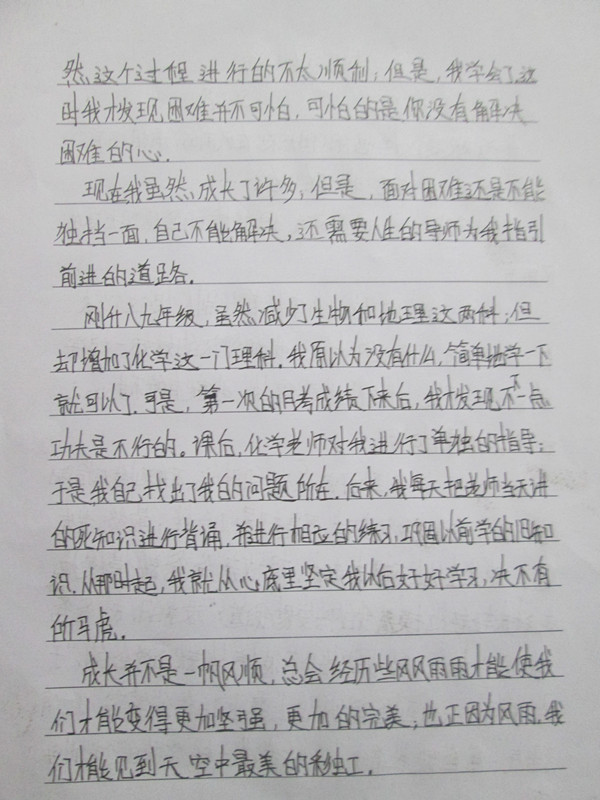 然,这个过程进行的不太顺利;但是,我学会了,这
时我才发现困难并不可怕,可怕的是你没有解决
困难的心.
现在我虽然成长了许多;但是,面对困难还是不能
独挡一面,自己不能解决,还需要人生的导师为我指引
前进的道路.
刚升八九年级,虽然减少了生物和地理这两科;但
却增加了化学这一门理科.我原以为没有什么,简单地学一下
就可以了.可是,第一次的月考成绩下来后,我才发现不下一点
功夫是不行的。课后,化学老师对我进行了单独的指导;
于是我自己找出了我的问题所在.后来,我每天把老师当天讲
的死知识进行背诵,并进行相应的练习,巩固以前学的旧知
识.从那时起,我就从心底里坚定我以后好好学习,决不有
的马虎.
成长并不是一帆风顺,总会经历些风风雨雨才能使我
们才能变得更加坚强,更加的完美;也正因为风雨,我
们才能见到天空中最美的彩虹.